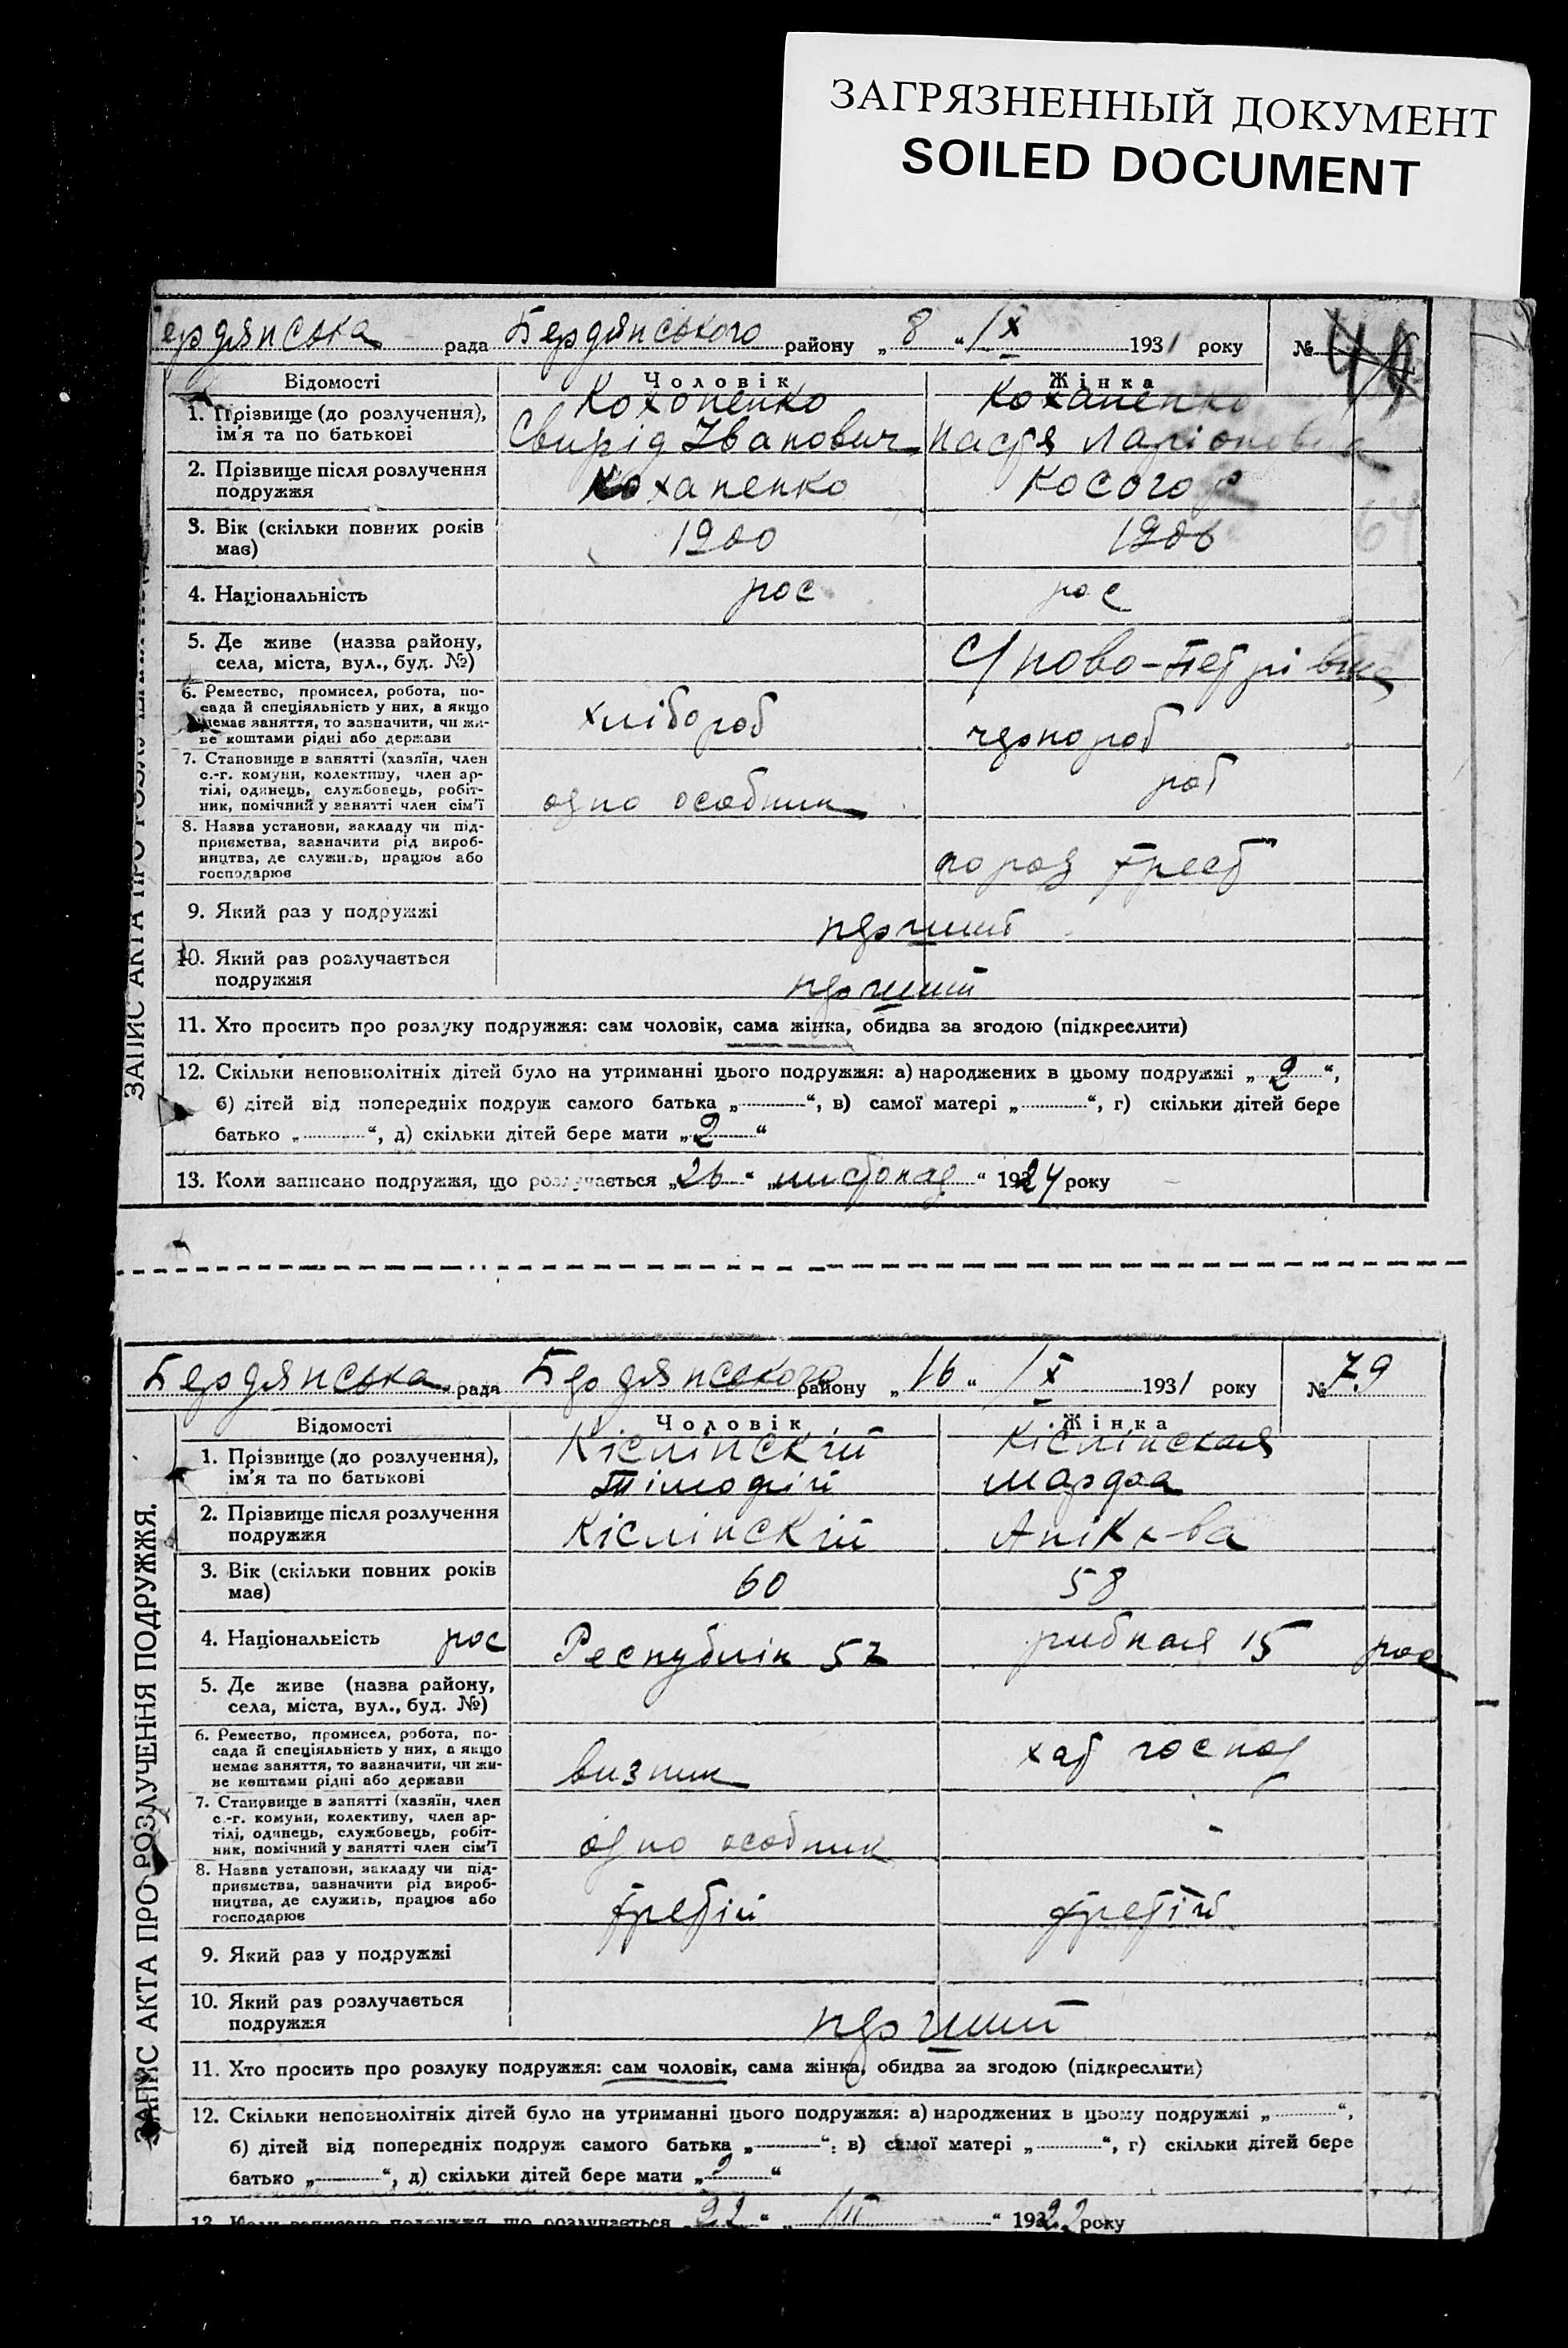 ЗАГРЯЗНЕННЫЙ ДОКУМЕНТ
SOILED DOCUMENT
ердянська рада Бердянського району „8“ /ІХ 1931 року №
Відомості Чоловік Жінка
1. Прізвище (до розлучення), Кохоненко Коханенко
ім'я та по батькові Свирід Іванович Настя Ларіоновна
2. Прізвище після розлучення
подружжя Коханенко Косогор
3. Вік (скільки повних років
має) 1900 1906
4. Національність рос рос
5. Де живе (назва району,
села, міста, вул., буд. №) С/ Ново-Петрівка
6. Ремество, промисел, робота, по-
сада й спеціяльність у них, а якщо
немає заняття, то зазначити, чи жи-
ве коштами рідні або держави хлібороб чорнороб
7. Становище в занятті (хазяїн, член
с.-г. комуни, колективу, член ар-
тілі, одинець, службовець, робіт-
ник, помічний у занятті член сім'ї одноособник роб
8. Назва установи, закладу чи під-
приємства, зазначити рід вироб-
ництва, де служить, працює або
господарює трест
9. Який раз у подружжі перший
10. Який раз розлучається
подружжя перший
11. Хто просить про розлуку подружжя: сам чоловік, сама жінка, обидва за згодою (підкреслити)
12. Скільки неповнолітніх дітей було на утриманні цього подружжя: а) народжених в цьому подружжі „2“,
б) дітей від попередніх подруж самого батька „ “, в) самої матері „ “, г) скільки дітей бере
батько „ “, д) скільки дітей бере мати „2“
13. Коли записано подружжя, що розлучається „26“ „листопад“ 1924 року
ЗАПИС АКТА ПРО
Бердянська рада Бердянського району „16“ /ІХ 1931 року № 79
Відомості Чоловік Жінка
1. Прізвище (до розлучення), Кіслінскій Кіслінская
ім'я та по батькові Тімофій Марфа
2. Прізвище після розлучення
подружжя Кіслінскій Анікева
3. Вік (скільки повних років
має) 60 58
4. Національність рос Республік 57 рибная 15 рос
5. Де живе (назва району,
села, міста, вул., буд. №)
6. Ремество, промисел, робота, по-
сада й спеціяльність у них, а якщо
немає заняття, то зазначити, чи жи-
ве коштами рідні або держави визник хат господ
7. Становище в занятті (хазяїн, член
с.-г. комуни, колективу, член ар-
тілі, одинець, службовець, робіт-
ник, помічний у занятті член сім'ї одноособник -
8. Назва установи, закладу чи під-
приємства, зазначити рід вироб-
ництва, де служить, працює або
господарює третій третій
9. Який раз у подружжі
10. Який раз розлучається
подружжя перший
11. Хто просить про розлуку подружжя: сам чоловік, сама жінка, обидва за згодою (підкреслити)
12. Скільки неповнолітніх дітей було на утриманні цього подружжя: а) народжених в цьому подружжі „ “,
б) дітей від попередніх подруж самого батька „ “, в) самої матері „ “, г) скільки дітей бере
батько „ “, д) скільки дітей бере мати „2“
13. Коли записано подружжя, що розлучається „22“ „/ІІІ“ 1922 року
ЗАПИС АКТА ПРО РОЗЛУЧЕННЯ ПОДРУЖЖЯ.